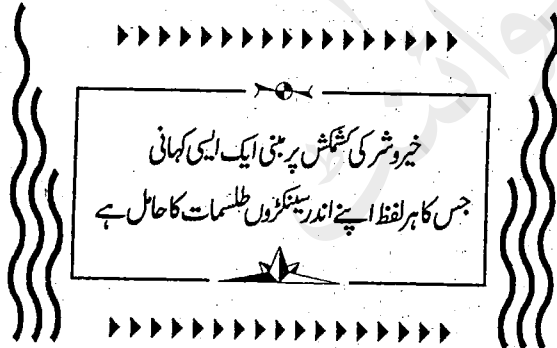 خیر و شر کی کشمکش پر مبنی ایک ایسی کہانی
جس کا ہر لفظ اپنے اندر سینکڑوں طلسمات کا حامل ہے